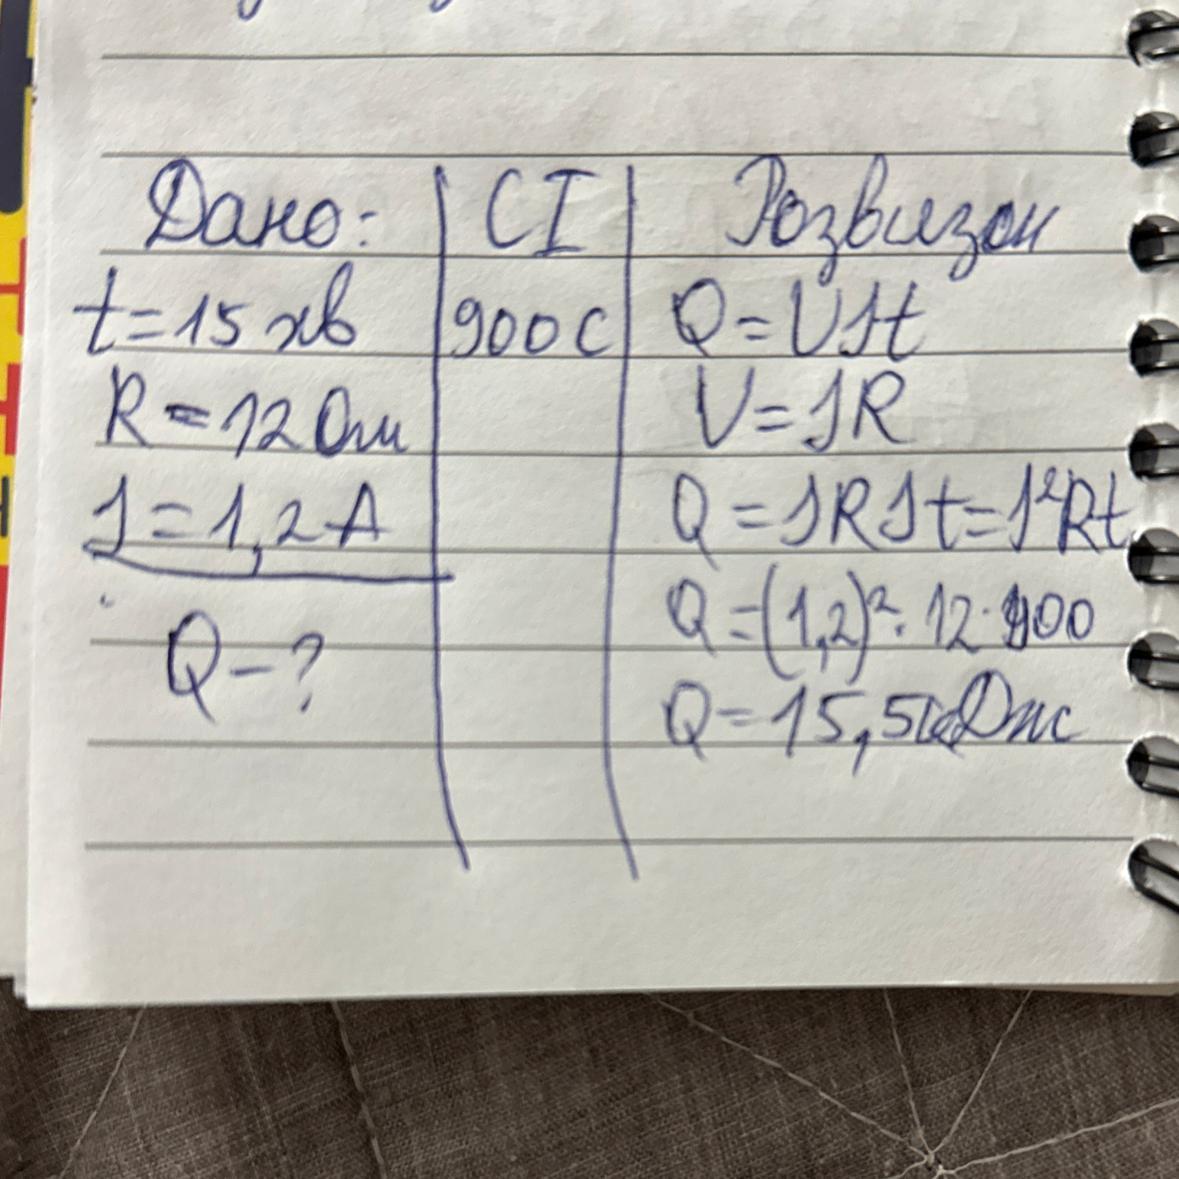 Дано: СІ Розв'язок
t=15 хв 900 С Q=UIt
R=12 Ом U=IR
I=1,2 А Q=IRIt=I²Rt
Q-? Q=(1,2)²·12·900
Q=15,5кДж